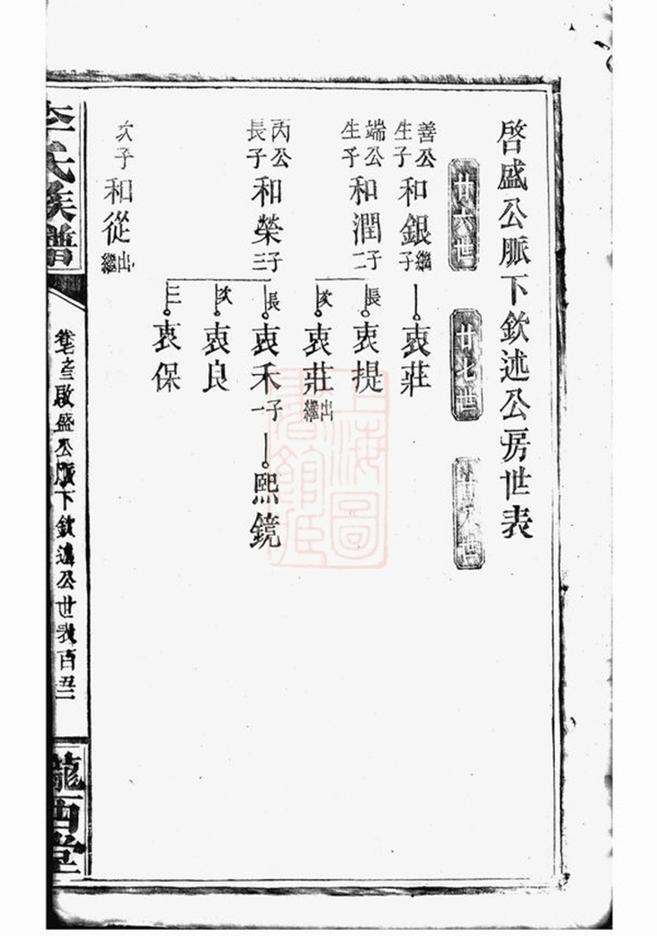 啓盛公脈下欽述公房世表
廿六世
廿七世
廿八世
善公生子和銀繼子
衷莊
端公生子和潤二子
長衷提
次衷莊出繼
丙公長子和榮三子
長衷禾一子
熙鏡
次衷良
三衷保
次子和從出繼
李氏族譜
啟盛公脈下欽述公世表百
隴西堂
上海圖書館藏